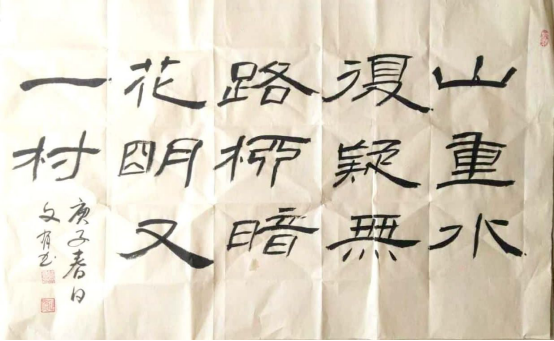 山重水
復疑無
路柳暗
花明又
一村
庚子春日
文有书